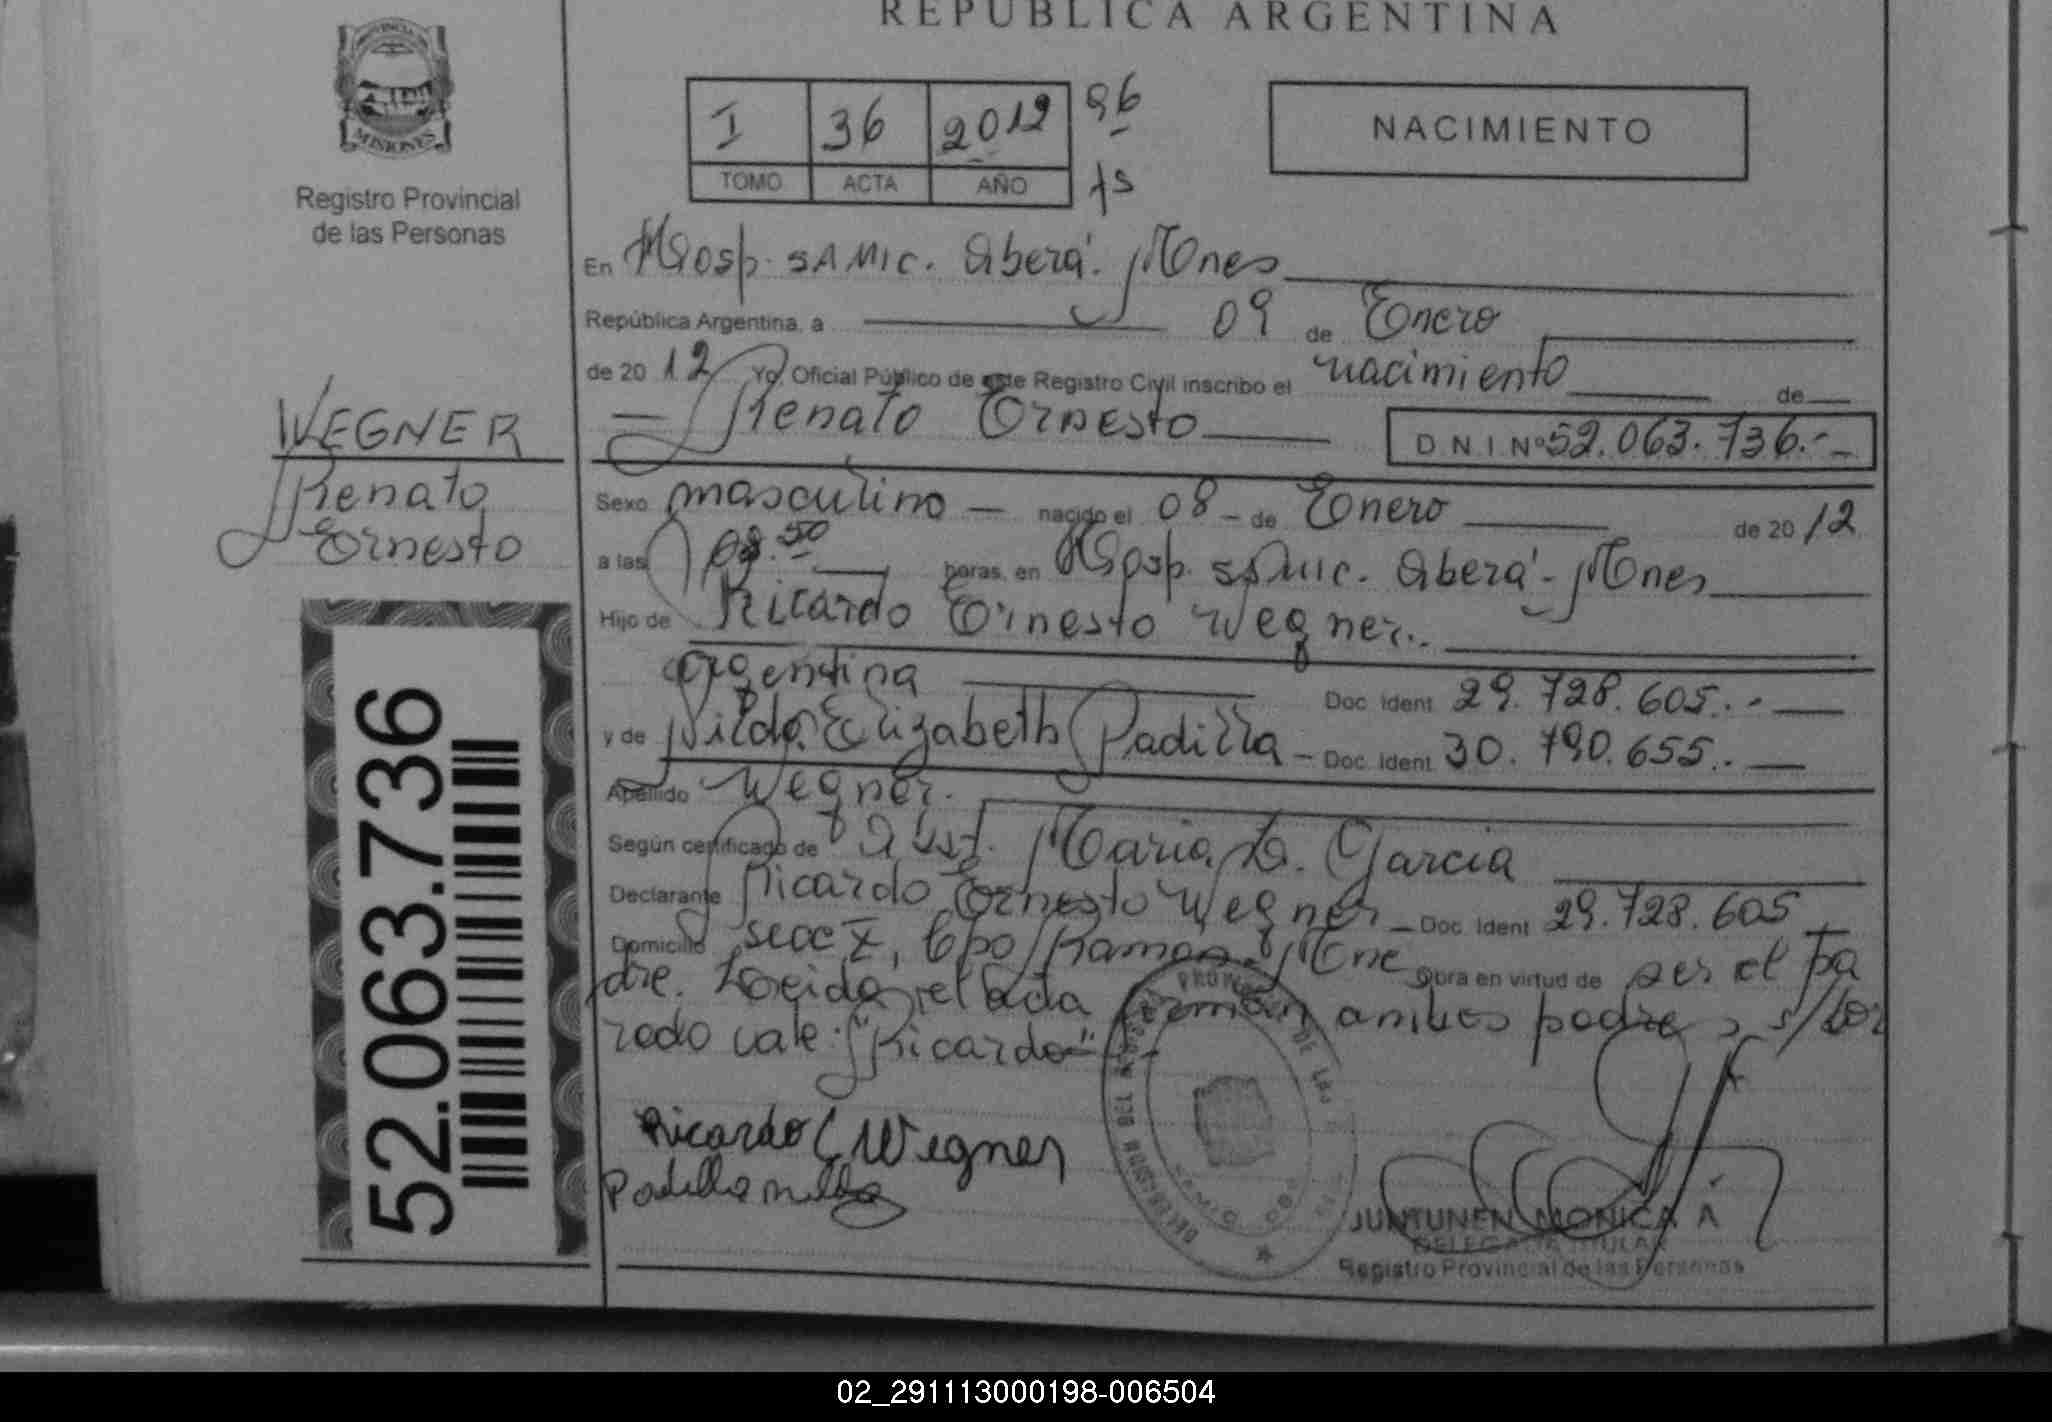 REPUBLICA ARGENTINA
PROVINCIA DE
MISIONES
Registro Provincial
de las Personas
I 36 2012 96
TOMO ACTA AÑO fs
NACIMIENTO
En Hosp. SAMIC. Oberá. Mnes
República Argentina, a 09 de Enero
de 2012 Yo, Oficial Público de este Registro Civil inscribo el nacimiento de
Renato Ernesto D.N.I Nº 52.063.736.-
WEGNER
Renato
Ernesto
Sexo masculino - nacido el 08 - de Enero de 2012
a las 08.50 horas, en Hosp. SAMIC. Oberá - Mnes
Hijo de Ricardo Ernesto Wegner.
argentina Doc. Ident 29.728.605.-
y de Nilda Elizabeth Padilla - Doc. Ident 30.790.655.
Apellido Wegner.
Según certificado de Obst. Maria L. Garcia
Declarante Ricardo Ernesto Wegner - Doc. Ident 29.728.605
Domicilio secc Mne Obra en virtud de ser el pa
dre. Leida el acta firman ambos padres s/bor
rado vale: "Ricardo"-
52.063.736
Ricardo E Wegner
Padilla nilda
JUNTUNEN MONICA A
DELEGADA TITULAR
Registro Provincial de las Personas
02_291113000198-006504